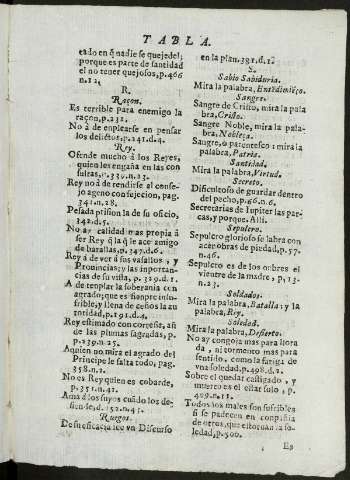 TABLA.
tado en q̃ nadie se quejedel;
porque es parte de santidad
el no tener quejosos, p.466
n.12.
R.
Raçon.
Es terrible para enemigo la
raçon, p.231.
No à de enplearse en pensar
los delictos, p.241.d.4.
Rey.
Ofende mucho à los Reyes,
quien les engaña en las con
sultras, p.339.n.23.
Rey no à de rendirse al conse-
jo ageno con sujecion, pag.
341.n.28.
Pesada prision la de su oficio,
342.d.5.
No ay calidad mas propia à
ser Rey q̃ la q̃ le ace amigo
de batallas, p.347.d.6.
Rey à de ver à sus vasallos, y
Prouincias; y las inportan-
cias de su vista, p.329.d.1.
A de tenplar la soberania con
agrado; que es sienpre inju-
frible, y llena de ceños la au
toridad, p.191.d.4.
Rey estimado con cortesia, añ
de las plumas sagradas, p.
239.n.25.
A quien no mira el agrado del
Principe le falta todo, pag.
358.n.2.
No es Rey quien es cobarde,
p.351.n.41.
Ama à los suyos cuãdo los de-
fiende, d.152.n.43.
Ruegos.
De su eficacia lee vn Discurso
en la plan.381.d.1.
S.
Sabio Sabiduria.
Mira la palabra, Entẽdimiẽto.
Sangre.
Sangre de Cristo, mira la pala
bra, Cristo.
Sangre Noble, mira la pala-
bra, Nobleça.
Sangre, o parentesco: mira la
palabra, Patria.
Santidad.
Mira la palabra, Virtud.
Secreto.
Dificultoso de guardar dentro
del pecho, p.66.n.6.
Secretarias de Iupiter las par-
cas, y porque. Alli.
Sepulcro.
Sepulcro glorioso se labra con
acer obras de piedad, p.57.
n.46.
Sepulcro es de los onbres el
vientre de la madre, p,13.
n.23.
Soldados.
Mira la palabra, Batalla: y la
palabra, Rey.
Soledad.
Mira la palabra, Desierto.
No ay congoja mas para llora
da, ni tormento mas para
sentido, como la fatiga de
vna soledad. p.498.d.2.
Sobre el quedar castigado, y
muerto es el estar solo, p.
499.n.11.
Todos los males son sufribles
si se padecen en conpañia
de otros, que estoruan la so
ledad, p.500.
Es